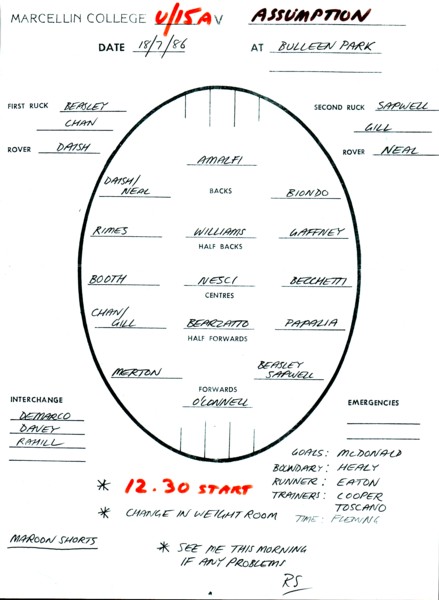 MARCELLIN COLLEGE U/15A V ASSUMPTION
DATE 18/7/86 AT BULLEEN PARK
FIRST RUCK BEASLEY
CHAN
ROVER DAISH
SECOND RUCK SAPWELL
GILL
ROVER NEAL
AMALFI
DAISH/
NEAL BACKS BIONDO
RIMES WILLIAMS GAFFNEY
HALF BACKS
BOOTH NESCI BECCHETTI
CENTRES
CHAN/
GILL BEARZATTO PAPALIA
HALF FORWARDS
MERTON BEASLEY
SAPWELL
FORWARDS
O'CONNELL
INTERCHANGE
DEMARCO
DAVEY
RAHILL
EMERGENCIES
GOALS: MCDONALD
BOUNDARY: HEALY
RUNNER: EATON
TRAINERS: COOPER
TOSCANO
TIME: FLEMING
* 12.30 START
* CHANGE IN WEIGHT ROOM
MAROON SHORTS
* SEE ME THIS MORNING
IF ANY PROBLEMS
RS